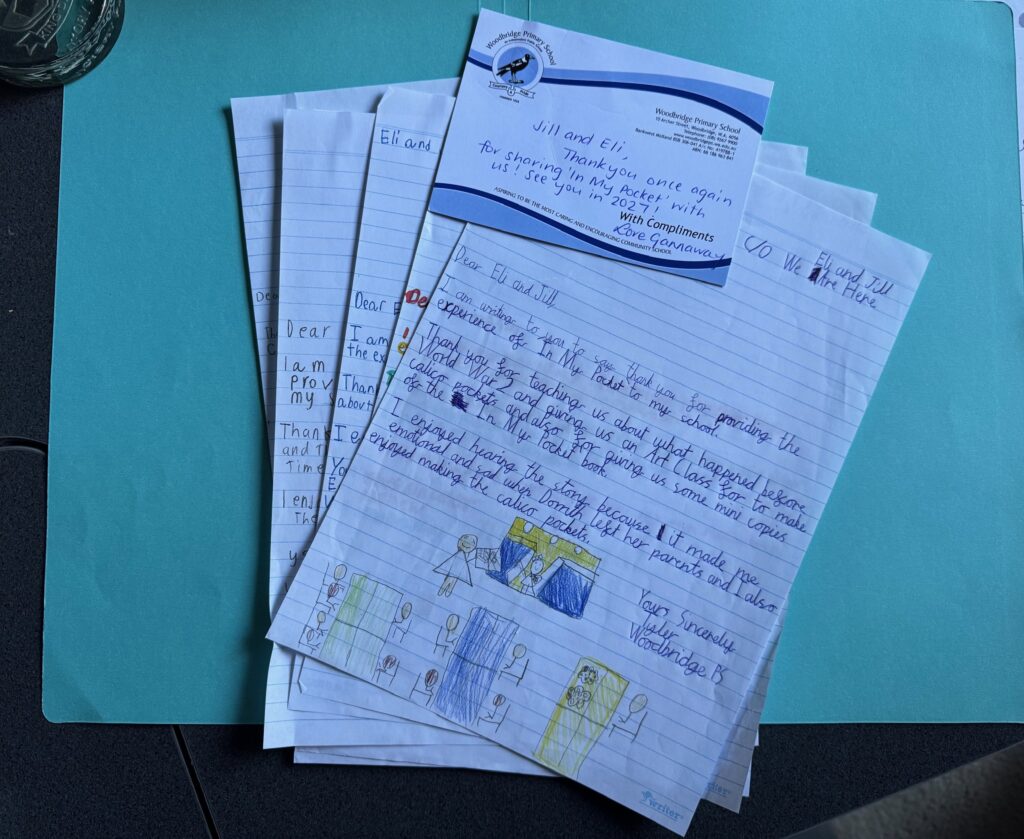 Woodbridge Primary School
An Independent Public School
Woodbridge Primary School
Archer Street, Woodbridge, W.A. 6056
Telephone: (08) 9267 9900
Jill and Eli,
Thankyou once again
for sharing 'In My Pocket' with
us! See you in 2027!
With Compliments
Gannaway
ASPIRING TO BE THE MOST CARING AND ENCOURAGING COMMUNITY SCHOOL
Eli and Jill
C/O We Are Here
Dear Eli and Jill
I am writing to you to say thank you for providing the
experience of In My Pocket to my school.
Thank you for teaching us about what happened before
World War 2 and giving us an Art Class for to make
calico pockets and also for giving us some mini copies
of the In My Pocket book.
I enjoyed hearing the story because it made me
emotional and sad when Dorrith left her parents and I also
enjoyed making the calico pockets.
Yours Sincerely
Woodbridge PS
writer
Eli and
Dear E
I am
the ex
Than
about
I e
Yo
E
De
Dear
I am
prov
my s
Than
and
Time
I enj
The
yo
Dea